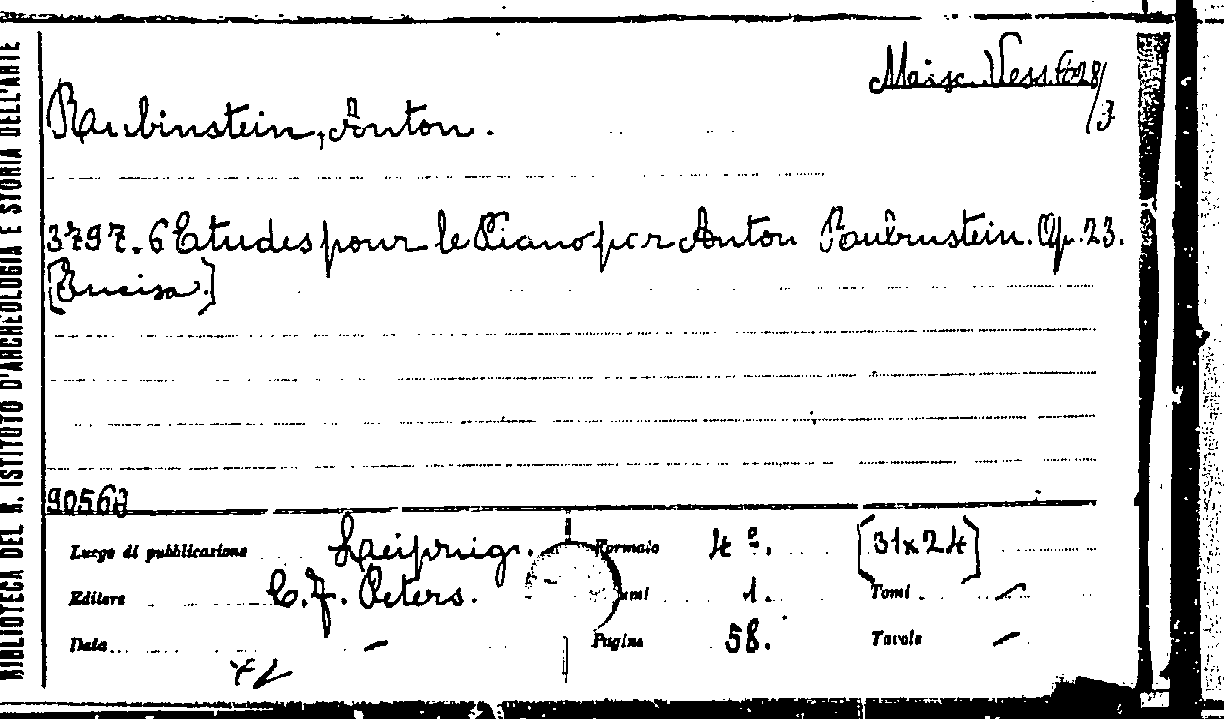 BIBLIOTECA DEL R. ISTITUTO D'ARCHEOLOGIA E STORIA DELL'ARTE
Vess.
/3
Rubinstein, Anton.
3797. 6 Etudes pour le Piano par Anton Rubinstein. Op. 23.
[Incisa.]
90568
Luogo di pubblicazione Leipzig. Formato 4º. [31x24]
Editore C. F. Peters. 1. Tomi –
Data – Pagine 58. Tavole –